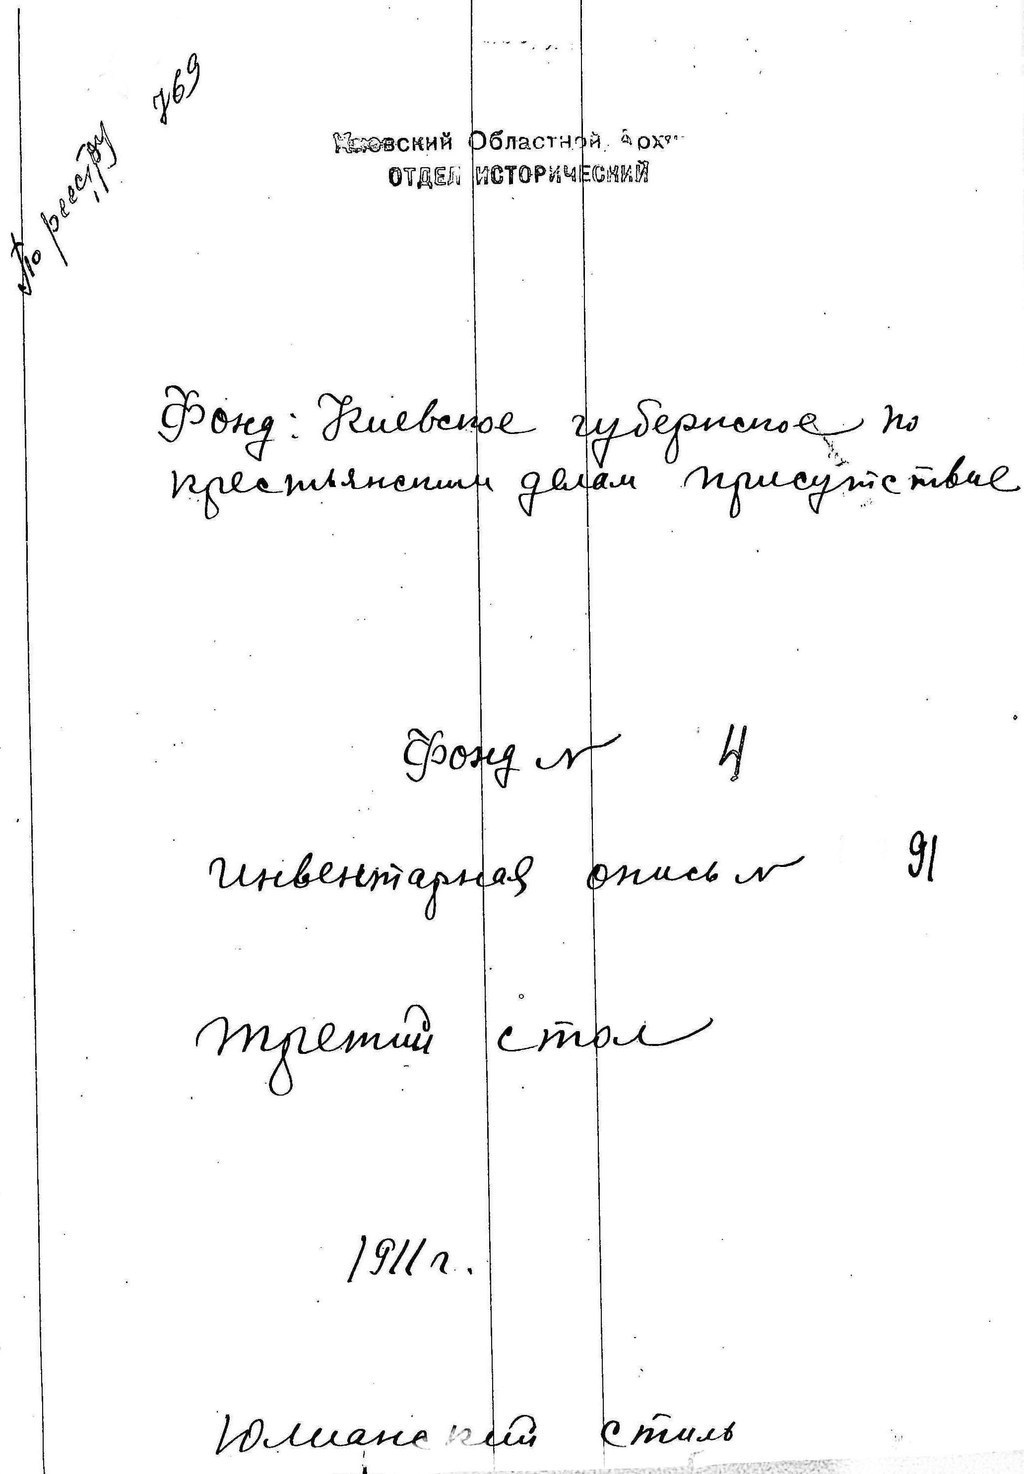 По реестру 769
Киевский Областной Архив
ОТДЕЛ ИСТОРИЧЕСКИЙ
Фонд: Киевское губернское по
крестьянским делам присутствие
Фонд № 4
Инвентарная опись № 91
Третий стол
1911 г.
Юлианский стиль